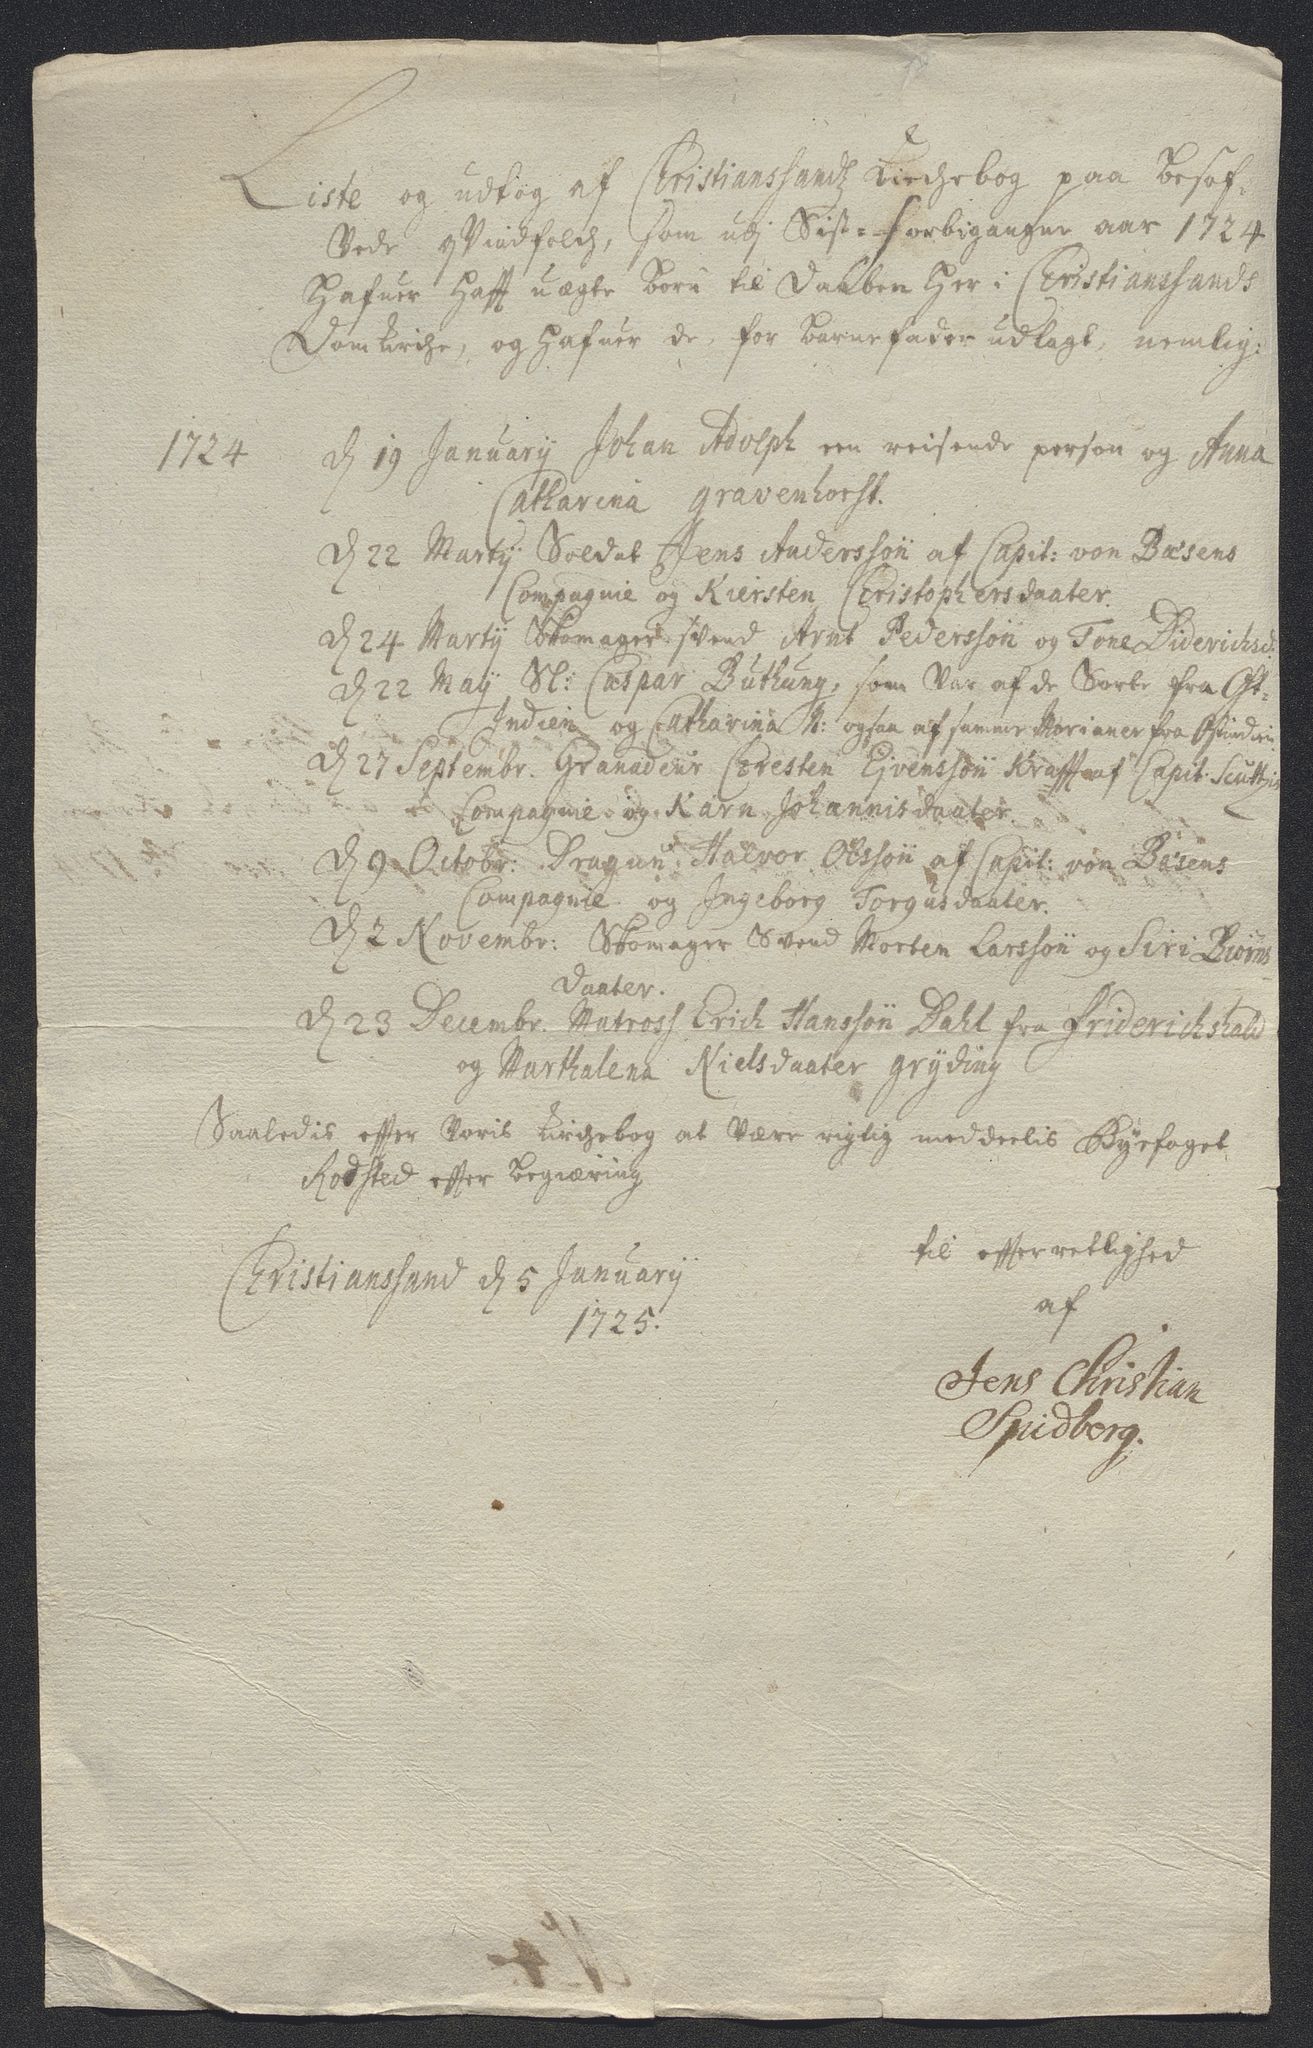 Liste og udtog af Christianssands Kirchebog paa besof-
vede qvindfolch, som udj Sist-forbigangne aar 1724
Hafuer Hafft uægte børn til Daaben Her i Christianssands
Domkirche, og Hafuer de, for barnefader udlagt, nemlig:
1724 d 19 January Johan Adolph een reisende person og Anna
Catharina gravenhorst.
d 22 Martÿ Soldat Jens Anderssøn af Capit: von Bøsens
Compagnie og Kiersten Christophersdaater.
d 24 Martÿ Skomager Svend Arnt Pederssøn og Tone Diderichsd:
d 22 Maÿ Sl: Caspar Buthung, som var af de Sorte fra Ost-
Indien og Catharina N: ogsaa af samme Morianer fra Ostindien
d 27 Septembr. Granadeur Chresten Ejvenssøn Krafft af Capit. Scuttzis
Compagnie og Karn Johannisdaater.
d 9 Octobr: Dragun Halvor Olssøn af Capit: von Bøsens
Compagnie og Ingeborg Torgusdaater.
d 2 Novembr: Skomager Svend Morten Larssøn og Siri Biørns
daater.
d 23 Decembr. Matross Erich Hanssøn Dahl fra Friderichshald
og Marthalena Nielsdaater grÿding
Saaledis efter voris Kirchebog at være rigtig meddeelis Byefoget
Rodsted efter begiæring
til efterretlighed
Christianssand d 5 Januarÿ
af
1725.
Jens Christian
Spidberg.